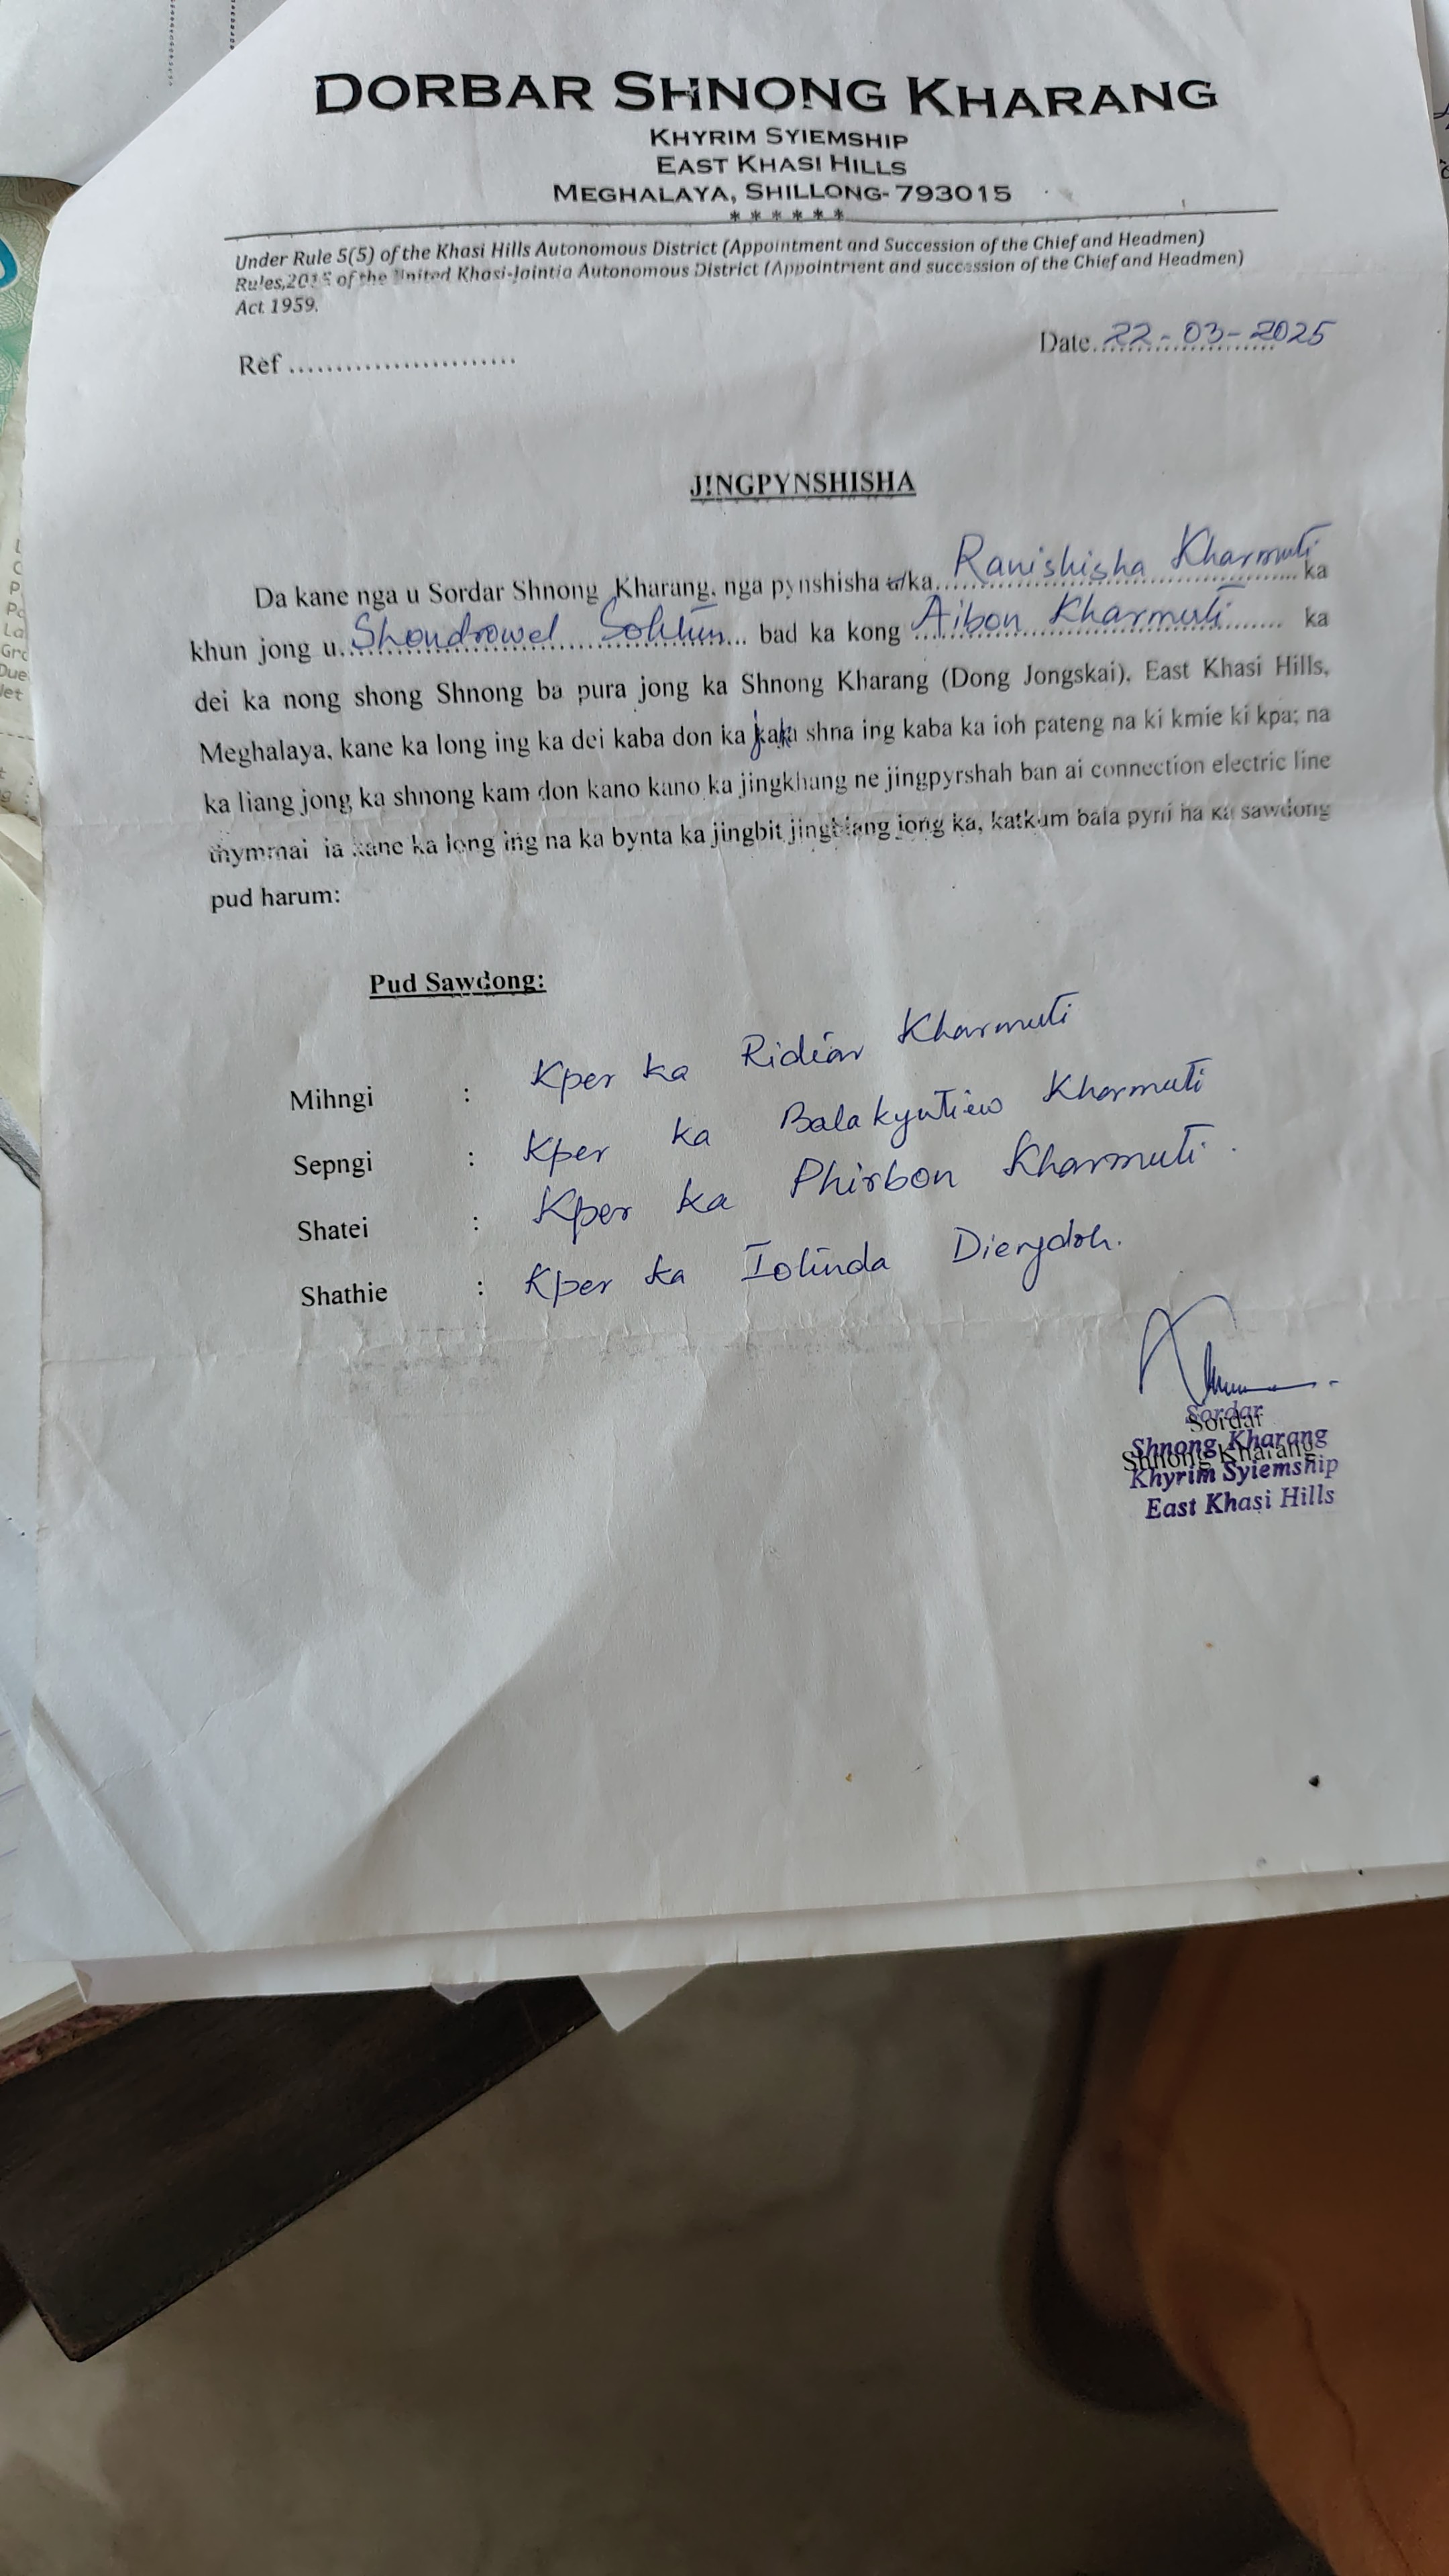 DORBAR SHNONG KHARANG
KHYRIM SYIEMSHIP
EAST KHASI HILLS
MEGHALAYA, SHILLONG- 793015
******
Under Rule 5(5) of the Khasi Hills Autonomous District (Appointment and Succession of the Chief and Headmen)
Rules,2015 of the United Khasi-Jaintia Autonomous District (Appointment and succession of the Chief and Headmen)
Act 1959.
Ref ........................
Date. 22-03-2025
JINGPYNSHISHA
Da kane nga u Sordar Shnong Kharang, nga pynshisha u/ka Ranishisha Kharmuti ka
khun jong u Shondrowel Sohtun bad ka kong Aibon Kharmuti ka
dei ka nong shong Shnong ba pura jong ka Shnong Kharang (Dong Jongskai), East Khasi Hills,
Meghalaya, kane ka long ing ka dei kaba don ka jaka shna ing kaba ka ioh pateng na ki kmie ki kpa; na
ka liang jong ka shnong kam don kano kano ka jingkhang ne jingpyrshah ban ai connection electric line
thymmai ia kane ka long ing na ka bynta ka jingbit jingbiang jong ka, katkum bala pyni ha ka sawdong
pud harum:
Pud Sawdong:
Mihngi : Kper ka Ridiar Kharmuti
Sepngi : Kper ka Balakyntiew Kharmuti
Shatei : Kper ka Phirbon Kharmuti.
Shathie : Kper ka Iolinda Diengdoh.
Sordar
Sordar
Shnong Kharang
Shnong Kharang
Khyrim Syiemship
East Khasi Hills